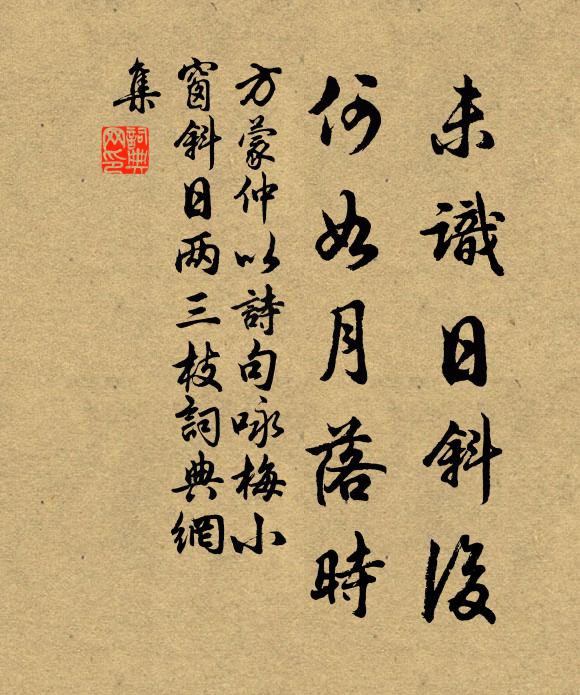 未識日斜後
何如月落時
方蒙仲以詩句咏梅小
窗斜日两三枝詞典網
集
詞典
网印